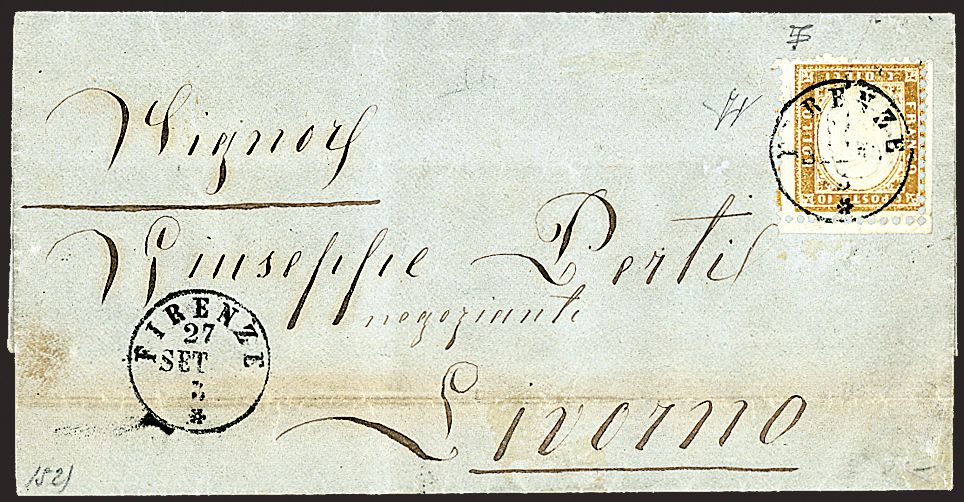 Signor
Giuseppe Perti
negoziante
Livorno
FIRENZE
27
SET
FIRENZE
FRANCO
C. POSTE 10
(52)